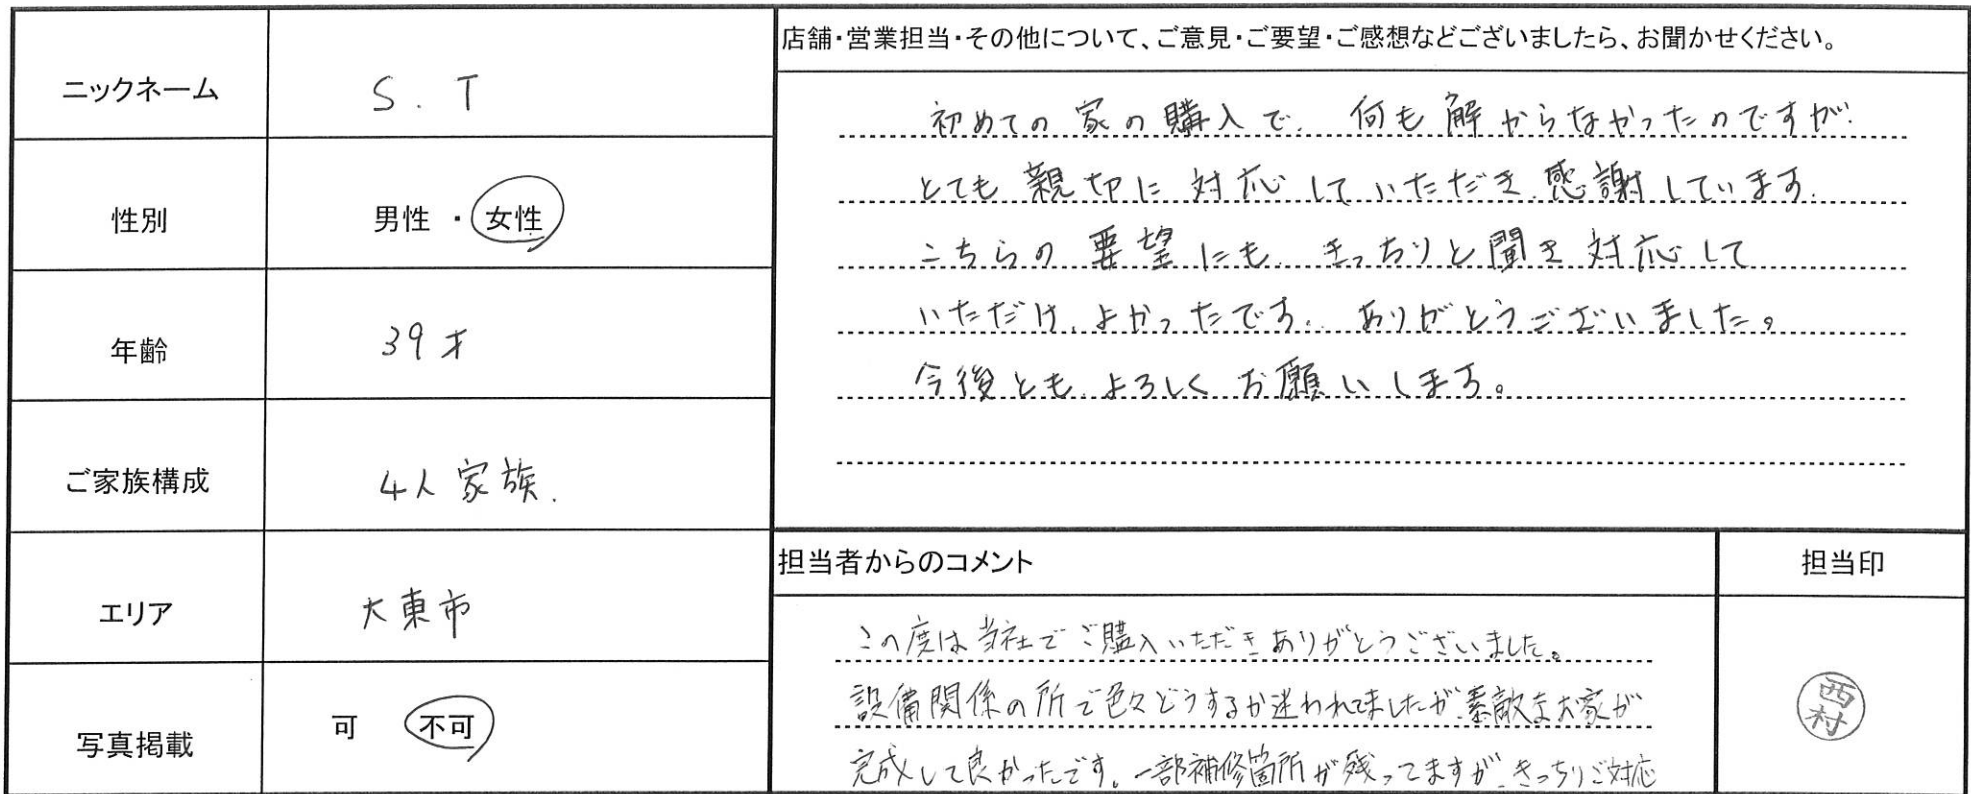 ニックネーム
S.T
性別
男性・女性
年齢
39才
ご家族構成
4人家族.
エリア
大東市
写真掲載
可 不可
店舗・営業担当・その他について、ご意見・ご要望・ご感想などございましたら、お聞かせください。
初めての家の購入で、何も解からなかったのですが、
とても親切に対応していただき感謝しています.
こちらの要望にも、きっちりと聞き対応して
いただけ、よかったです. ありがとうございました。
今後とも、よろしくお願いします。
担当者からのコメント
この度は当社でご購入いただきありがとうございました。
設備関係の所で色々どうするか迷われてましたが、素敵なお家が
完成して良かったです。一部補修箇所が残ってますが、きっちりご対応
担当印
西村